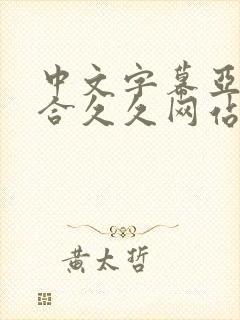 中文字幕亚
合久久网站
黄太哲